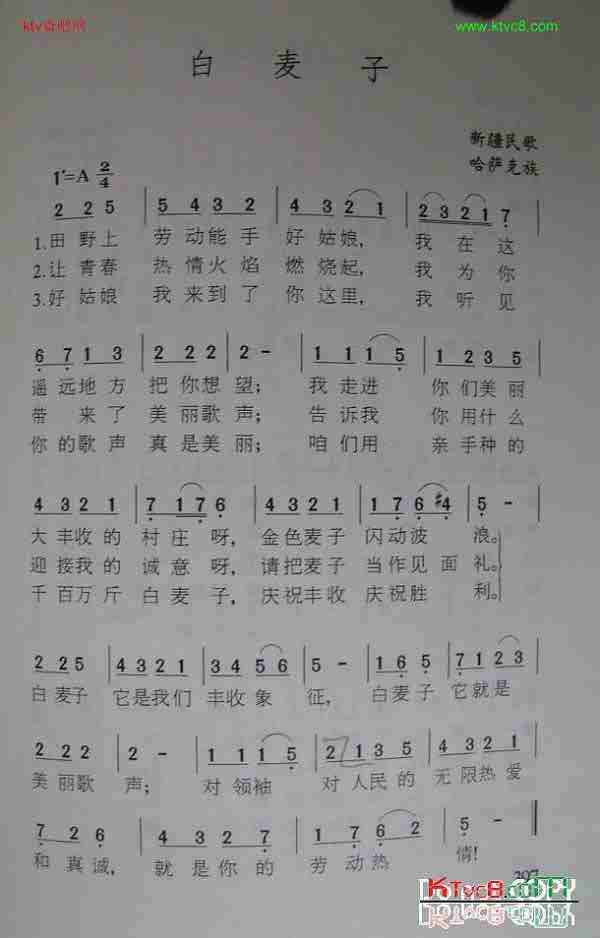 ktv俱吧网
www.ktvc8.com
白 麦 子
新疆民歌
哈萨克族
1=A 2/4
2 2 5 | 5 4 3 2 | 4 3 2 1 | 2 3 2 1 7 |
1.田 野上 劳动能手 好姑娘, 我 在 这
2.让 青春 热情火焰 燃烧起, 我 为 你
3.好 姑娘 我来到了 你这里, 我 听 见
6 7 1 3 | 2 2 2 2 | 2 - | 1 1 1 5 | 1 2 3 5 |
遥远地方 把你想望; 我 走进 你们美丽
带 来了 美丽歌声; 告诉我 你用什么
你的歌声 真是美丽; 咱们用 亲手种的
4 3 2 1 | 7 1 7 6 | 2 3 2 1 | 1 7 6 #4 | 5 - |
大丰收的 村庄呀, 金色麦子 闪动波 浪。
迎接我的 诚意呀, 请把麦子 当作见面 礼。
千百万斤 白麦子, 庆祝丰收 庆祝胜 利。
2 2 5 | 4 3 2 1 | 3 4 5 6 | 5 - | 1 6 5 | 7 1 2 3 |
白麦子 它是我们 丰收象 征, 白麦子 它就是
2 2 2 | 2 - | 1 1 1 5 | 2 1 3 5 | 4 3 2 1 |
美丽歌 声; 对领袖 对人民的 无限热爱
7 2 6 | 4 3 2 7 | 1 7 6 | 5 - |
和真诚, 就是你的 劳动热 情!
207
KTvc8.COM